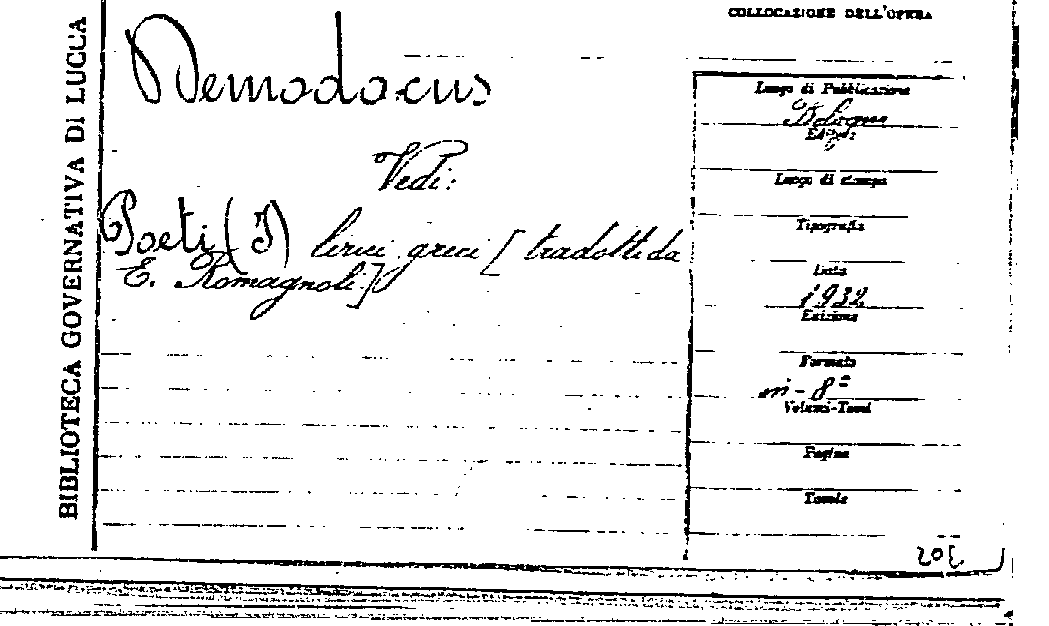 BIBLIOTECA GOVERNATIVA DI LUCCA
Demodocus
Vedi:
Poeti (I) lirici greci [tradotti da
E. Romagnoli]
COLLOCAZIONE DELL'OPERA
Luogo di Pubblicazione
Bologna
Luogo di stampa
Tipografia
Data
1932
Edizione
Formato
in-8º
Volumi-Tomi
Pagine
Tavole